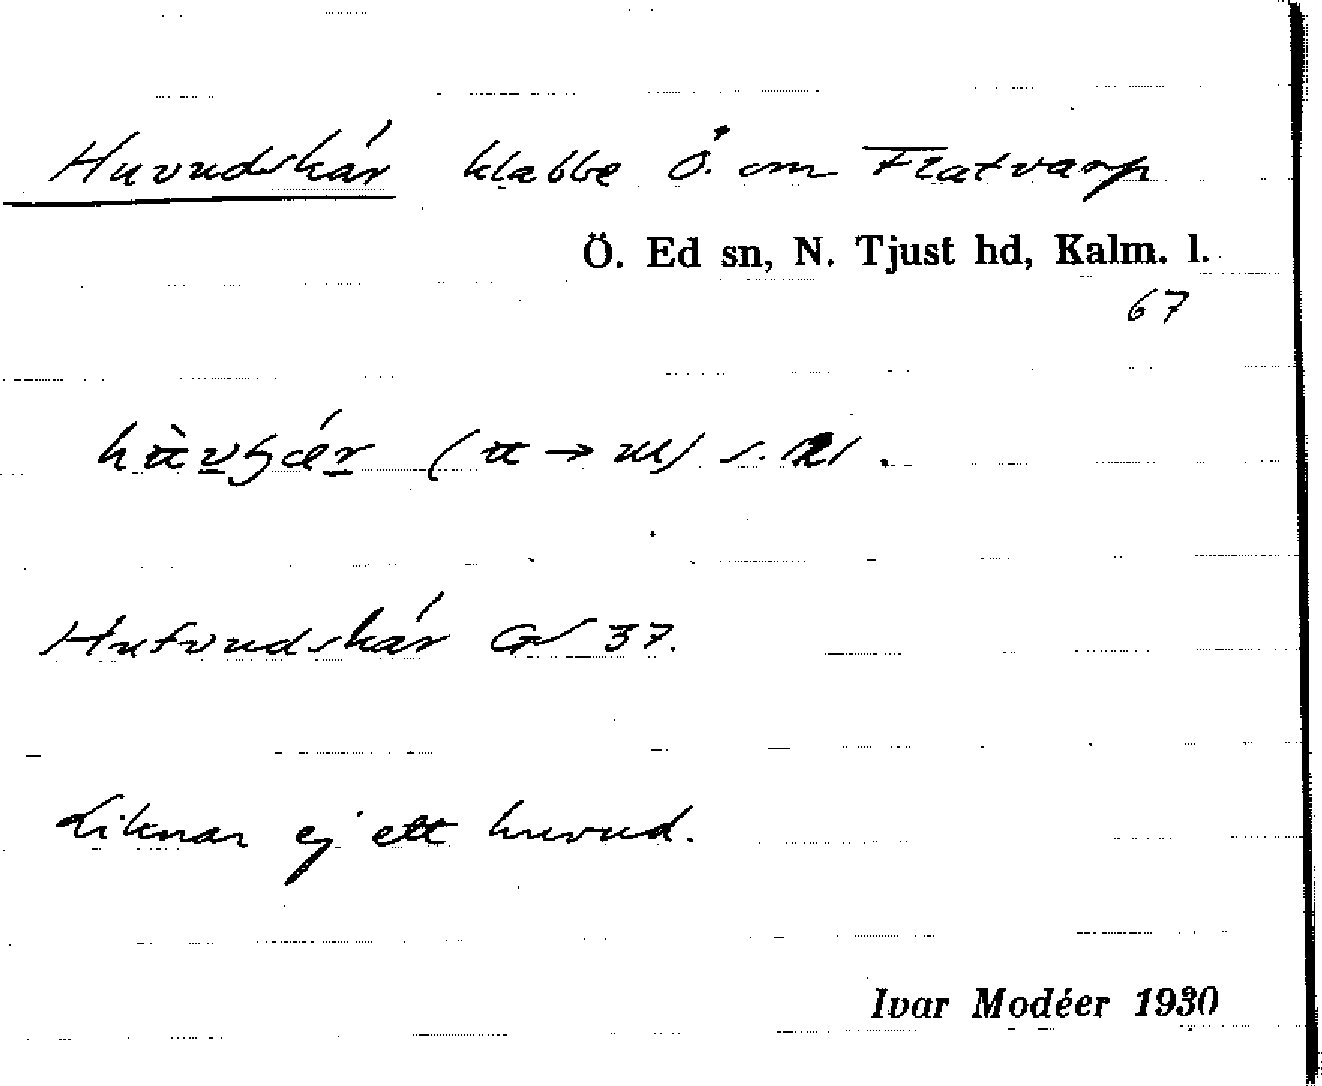 Huvudskär klabbe Ö. om Flatvarp
Ö. Ed sn, N. Tjust hd, Kalm. l.
67
Hufvudskär GV 37.
Liknar ej ett huvud.
Ivar Modéer 1930